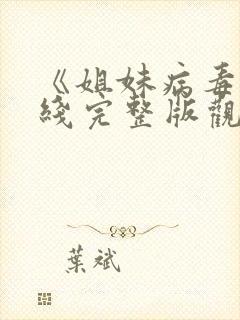 《姐妹病毒
綫完整版觀
葉斌